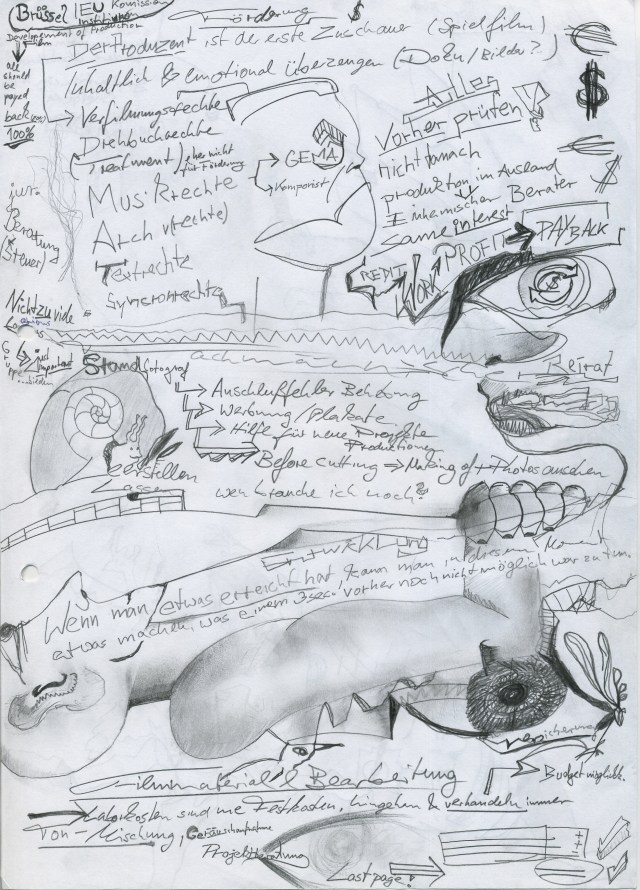 Brüssel EU Komission
Initiative
Developement of Production
Förderung
all should be payed back 100%
Der Produzent ist der erste Zuschauer (Spielfilm)
Inhaltlich & emotional überzeugen (Doku/Bilder?)
Verfilmungsrechte
Drehbuchrechte
(Treatment) eher nicht für Förderung
Musikrechte
GEMA
Komponist
Archiv(rechte)
Textrechte
Syncronrechte
Alles
Vorher prüfen!
nicht danach
produktion im Ausland
Inheimischer Berater
same interest
jur.
Beratung
(Steuer)
CREDIT WORK PROFIT PAYBACK
Nicht zu viele
just important
Standfotograf
Beirat
Auschlußfehler Behebung
Werbung/Plakate
Hilfe für neue Projekte
Produktion
Before cutting Making of + Photos aussehen
erstellen
lassen
wen brauche ich noch?
Entwiklung
Wenn man etwas erreicht hat, kann man in diesem Moment
etwas machen, was einem 3 sec. vorher noch nicht möglich war zu tun.
Versicherung
Filmmaterial & Bearbeitung
Budgetmöglichk.
Laborkosten sind nie Festkosten, hingehen & verhandeln immer
Ton-Mischung, Geräuschaufnahme
Projektberatung
Last page!